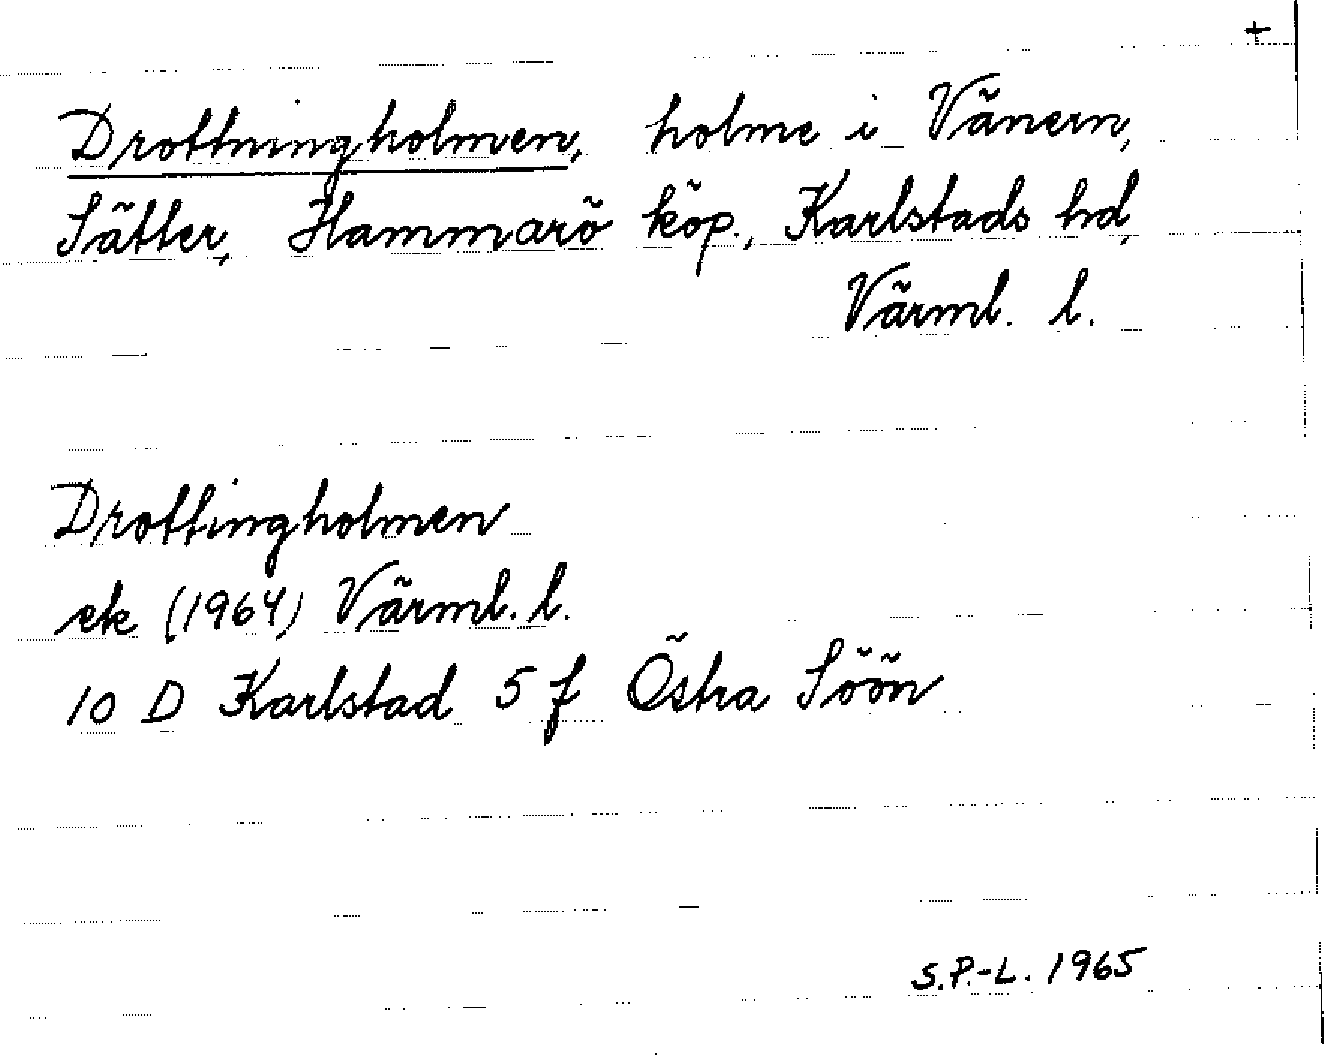 +
Drottningholmen, holme i Vänern,
Sätter, Hammarö köp., Karlstads hd,
Värml. l.
Drottingholmen
ek (1964) Värml. l.
10 D Karlstad 5 f Östra Söön
S.P.-L. 1965